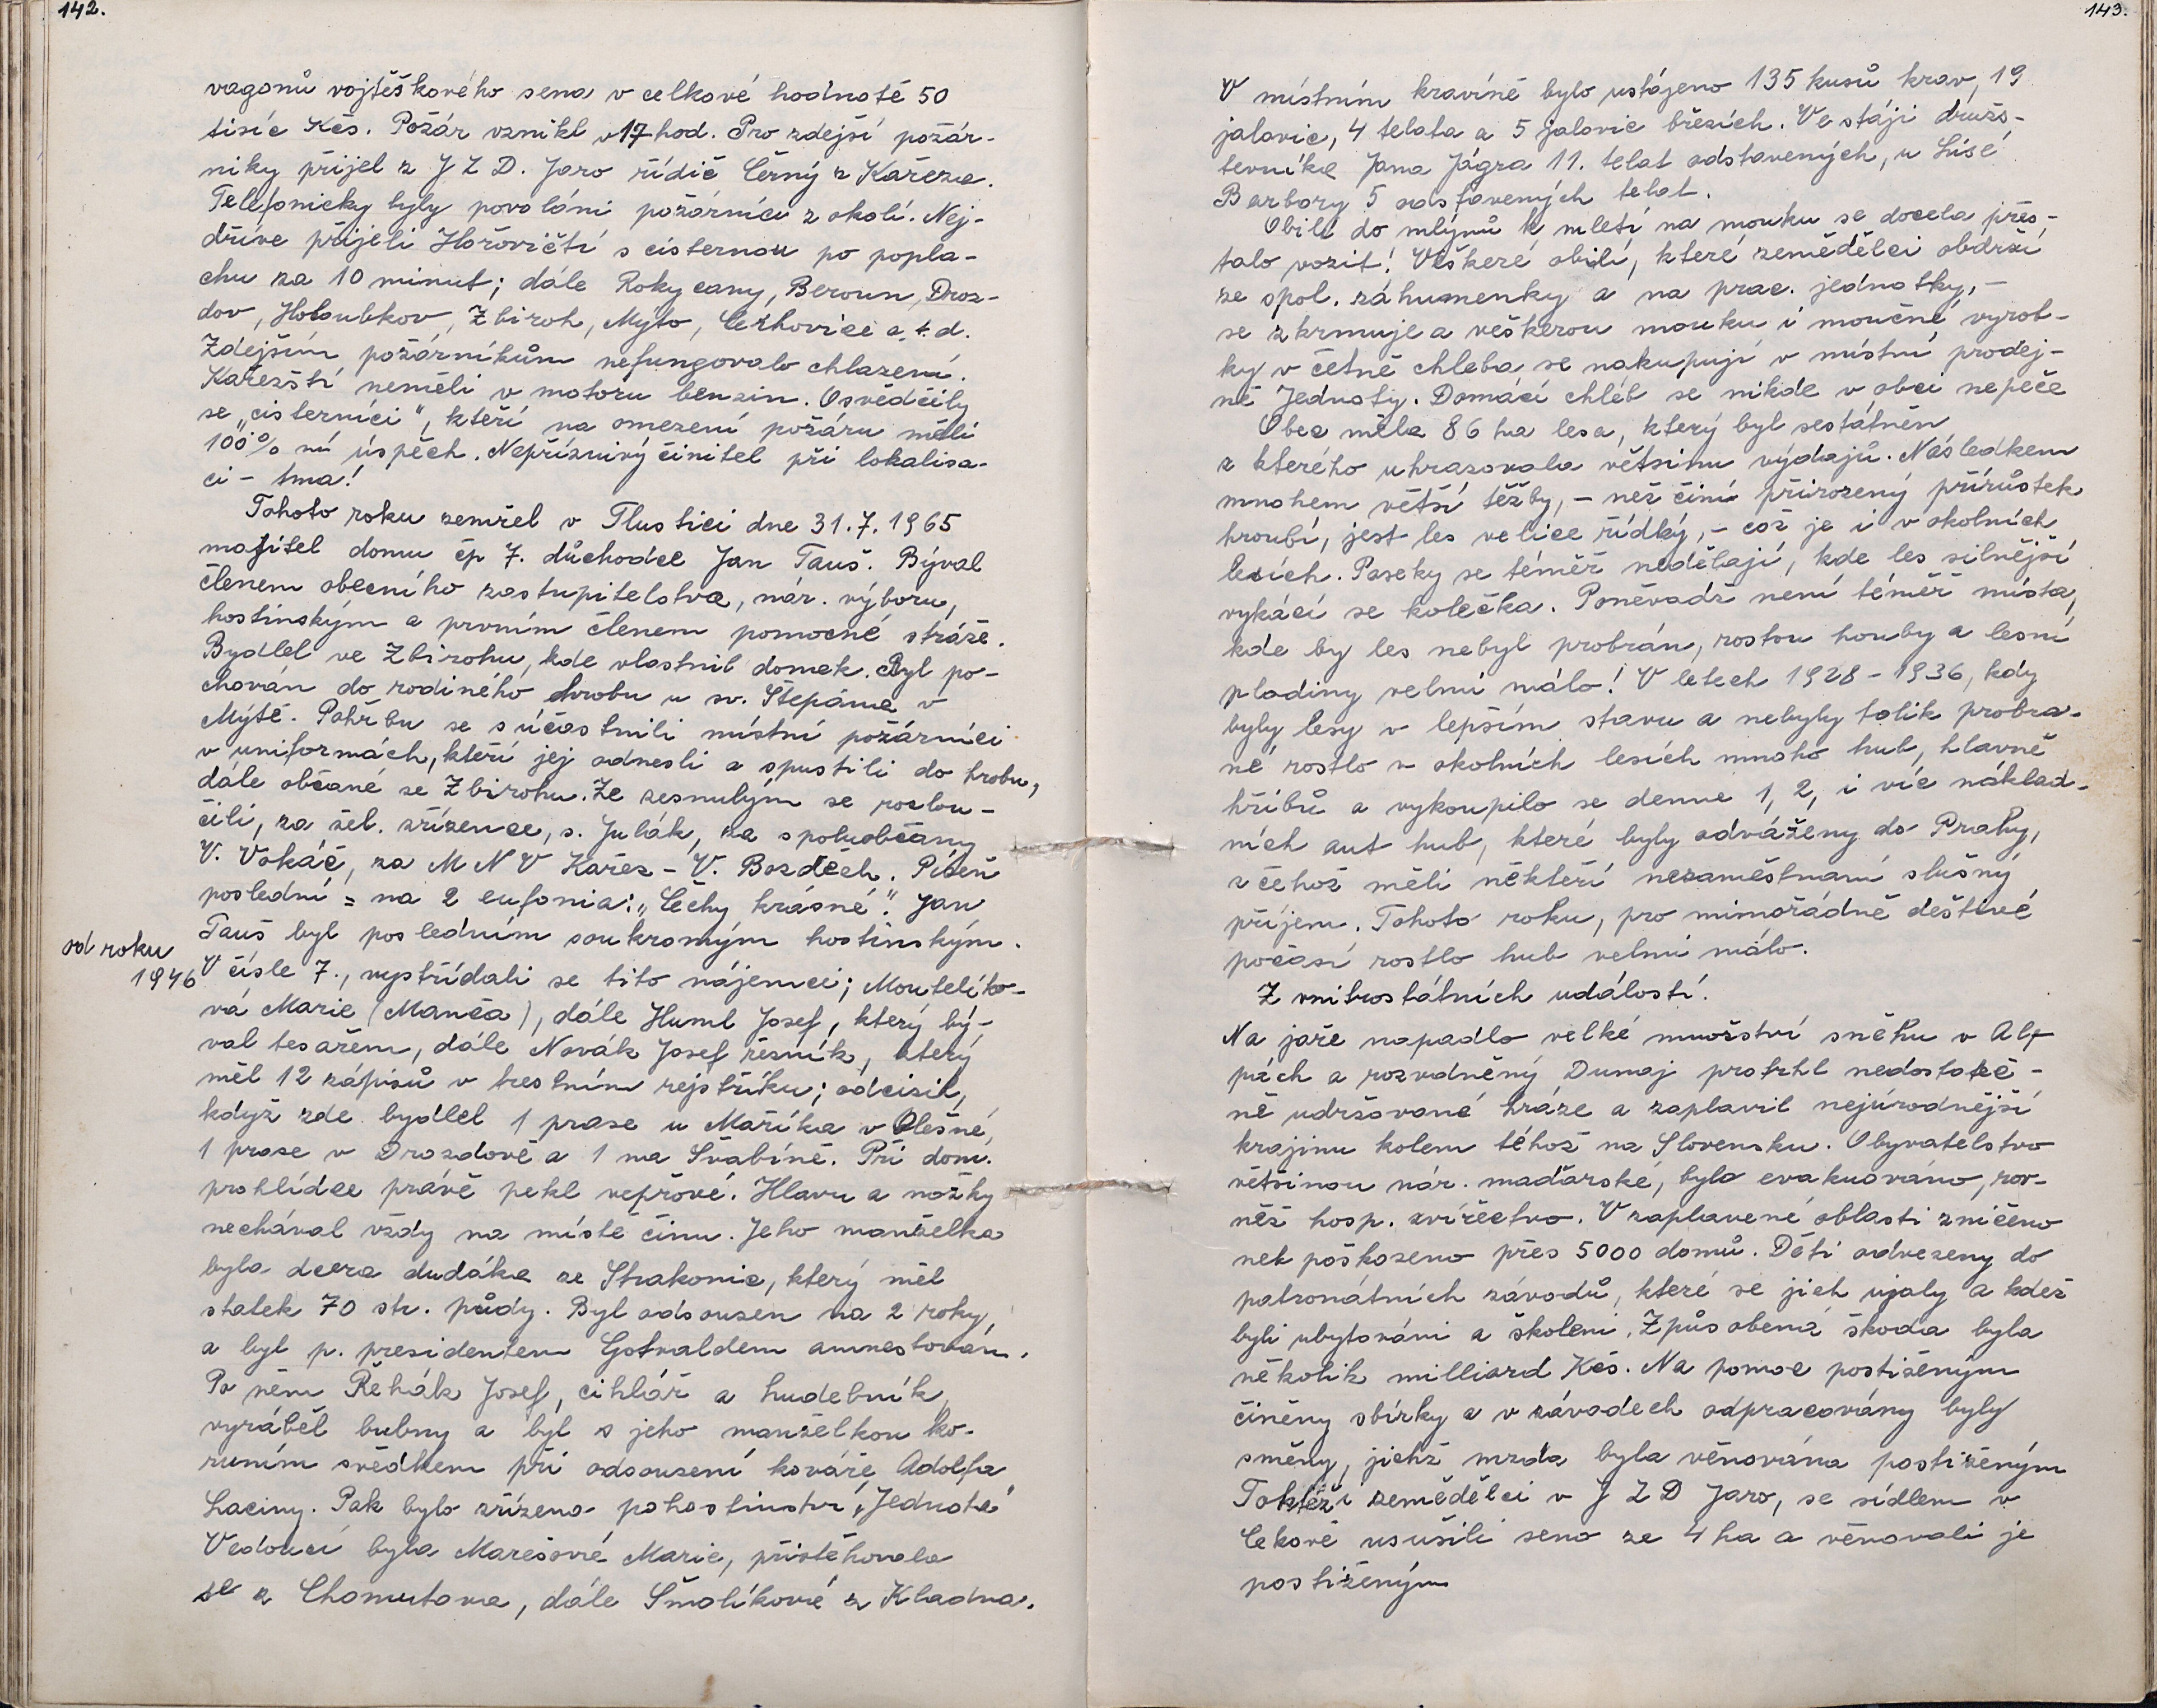 142.
vagonů vojtěškového sena v celkové hodnotě 50
tisíc Kčs. Požár vznikl v 17 hod. Pro zdejší požár-
niky přijel z J Z D. Jaro řídič Černý z Kařeza.
Telefonicky byly povoláni požárníci z okolí. Nej-
dříve přijeli Hořovičtí s cisternou po popla-
chu za 10 minut; dále Rokycany, Beroun, Droz-
dov, Holoubkov, Zbiroh, Mýto, Cerhovice a.t.d.
Zdejším požárníkům nefungovalo chlazení.
Kařezští neměli v motoru benzin. Osvědčily
se „cisterníci", kteří na omezení požáru měli
100% ní úspěch. Nepříznivý činitel při lokalisa-
ci - tma!
Tohoto roku zemřel v Tlustici dne 31.7.1965
majitel domu čp 7. důchodce Jan Tauš. Býval
členem obecního zastupitelstva, nár. výboru,
hostinským a prvním členem pomocné stráže.
Bydlel ve Zbirohu, kde vlastnil domek. Byl po-
chován do rodiného hrobu u sv. Štěpána v
Mýtě. Pohřbu se súčastnili místní požárníci
v uniformách, kteří jej odnesli a spustili do hrobu,
dále občané ze Zbirohu. Ze zesnulým se rozlou-
čili, za žel. zřízence, s. Julák, za spoluobčany
V. Vokáč, za M N V Kařez - V. Bozděch. Píseň
poslední = na 2 eufonia: „Čechy krásné". Jan
Tauš byl posledním soukromým hostinským.
od roku
1946
V čísle 7., vystřídali se tito nájemci; Moutelíko-
vá Marie (Manča), dále Huml Josef, který bý-
val tesařem, dále Novák Josef řezník, který
měl 12 zápisů v trestním rejstříku; odcizil,
když zde bydlel 1 prase u Maříka v Olešné,
1 prase v Drozdově a 1 na Švabíně. Při dom.
prohlídce právě pekl vepřové. Hlavu a nožky
nechával vždy na místě činu. Jeho manželka
byla dcera dudáka ze Strakonic, který měl
statek 70 str. půdy. Byl odsouzen na 2 roky,
a byl p. presidentem Gotvaldem amnestován.
Po něm Řehák Josef, cihlář a hudebník,
vyráběl bubny a byl s jeho manželkou ko-
runím svědkem při odsouzení kováře Adolfa
Laciny. Pak bylo zřízeno pohostinstvi „Jednota"
Vedoucí byla Marešová Marie, přistěhovala
se z Chomutova, dále Šmolíková z Kladna.
143.
V místním kravíně bylo ustájeno 135 kusů krav, 19
jalovic, 4 telata a 5 jalovic březích. Ve stáji družs-
tevníka Jana Jágra 11. telat odstavených, u Lísé
Barbory 5 odstavených telat.
Obilí do mlýnů k mletí na mouku se docela přes-
talo vozit! Veškeré obilí, které zemědělci obdrží
ze spol. záhumenky a na prac. jednotky, -
se zkrmuje a veškerou mouku i moučné vyrob-
ky v četně chleba se nakupují v místní prodej-
ně Jednoty. Domácí chléb se nikde v obci nepeče
Obec měla 86 ha lesa, který byl sestátněn
z kterého uhrazovala většinu výdajů. Následkem
mnohem větší těžby, - než činí přirozený přírůstek
hroubí, jest les velice řídký, - což je i v okolních
lesích. Paseky se téměř nedělají, kde les silnější
vykácí se kolečka. Poněvadž není téměř místa,
kde by les nebyl probrán, rostou houby a lesní
plodiny velmi málo! V létech 1928 - 1936, kdy
byly lesy v lepším stavu a nebyly tolik probra-
né rostlo v okolních lesích mnoho hub, hlavně
hřibů a vykoupilo se denne 1, 2, i víc náklad-
ních aut hub, které byly odváženy do Prahy,
z čehož měli někteří nezaměstnaní slušný
příjem. Tohoto roku, pro mimořádně deštivé
počásí rostlo hub velmi málo.
Z vnitrostátních událostí.
Na jaře napadlo velké množství sněhu v Al-
pách a rozvodněný Dunaj protrhl nedostateč-
ně udržované hráze a zaplavil nejúrodnější
krajinu kolem téhož na Slovensku. Obyvatelstvo
většinou nár. maďarské, bylo evakuováno, rov-
něž hosp. zvířectvo. V zaplavené oblasti zničeno
neb poškozeno přes 5000 domů. Děti odvezeny do
patronátních závodů, které se jich ujaly a kdež
byli ubytováni a školeni. Způsobená škoda byla
několik milliard Kčs. Na pomoc postiženým
činěny sbírky a v závodech odpracovány byly
směny, jichž mzda byla věnována postiženým
Taktéži zemědělci v J Z D Jaro, se sídlem v
Cekově usušili seno ze 4 ha a věnovali je
postiženým